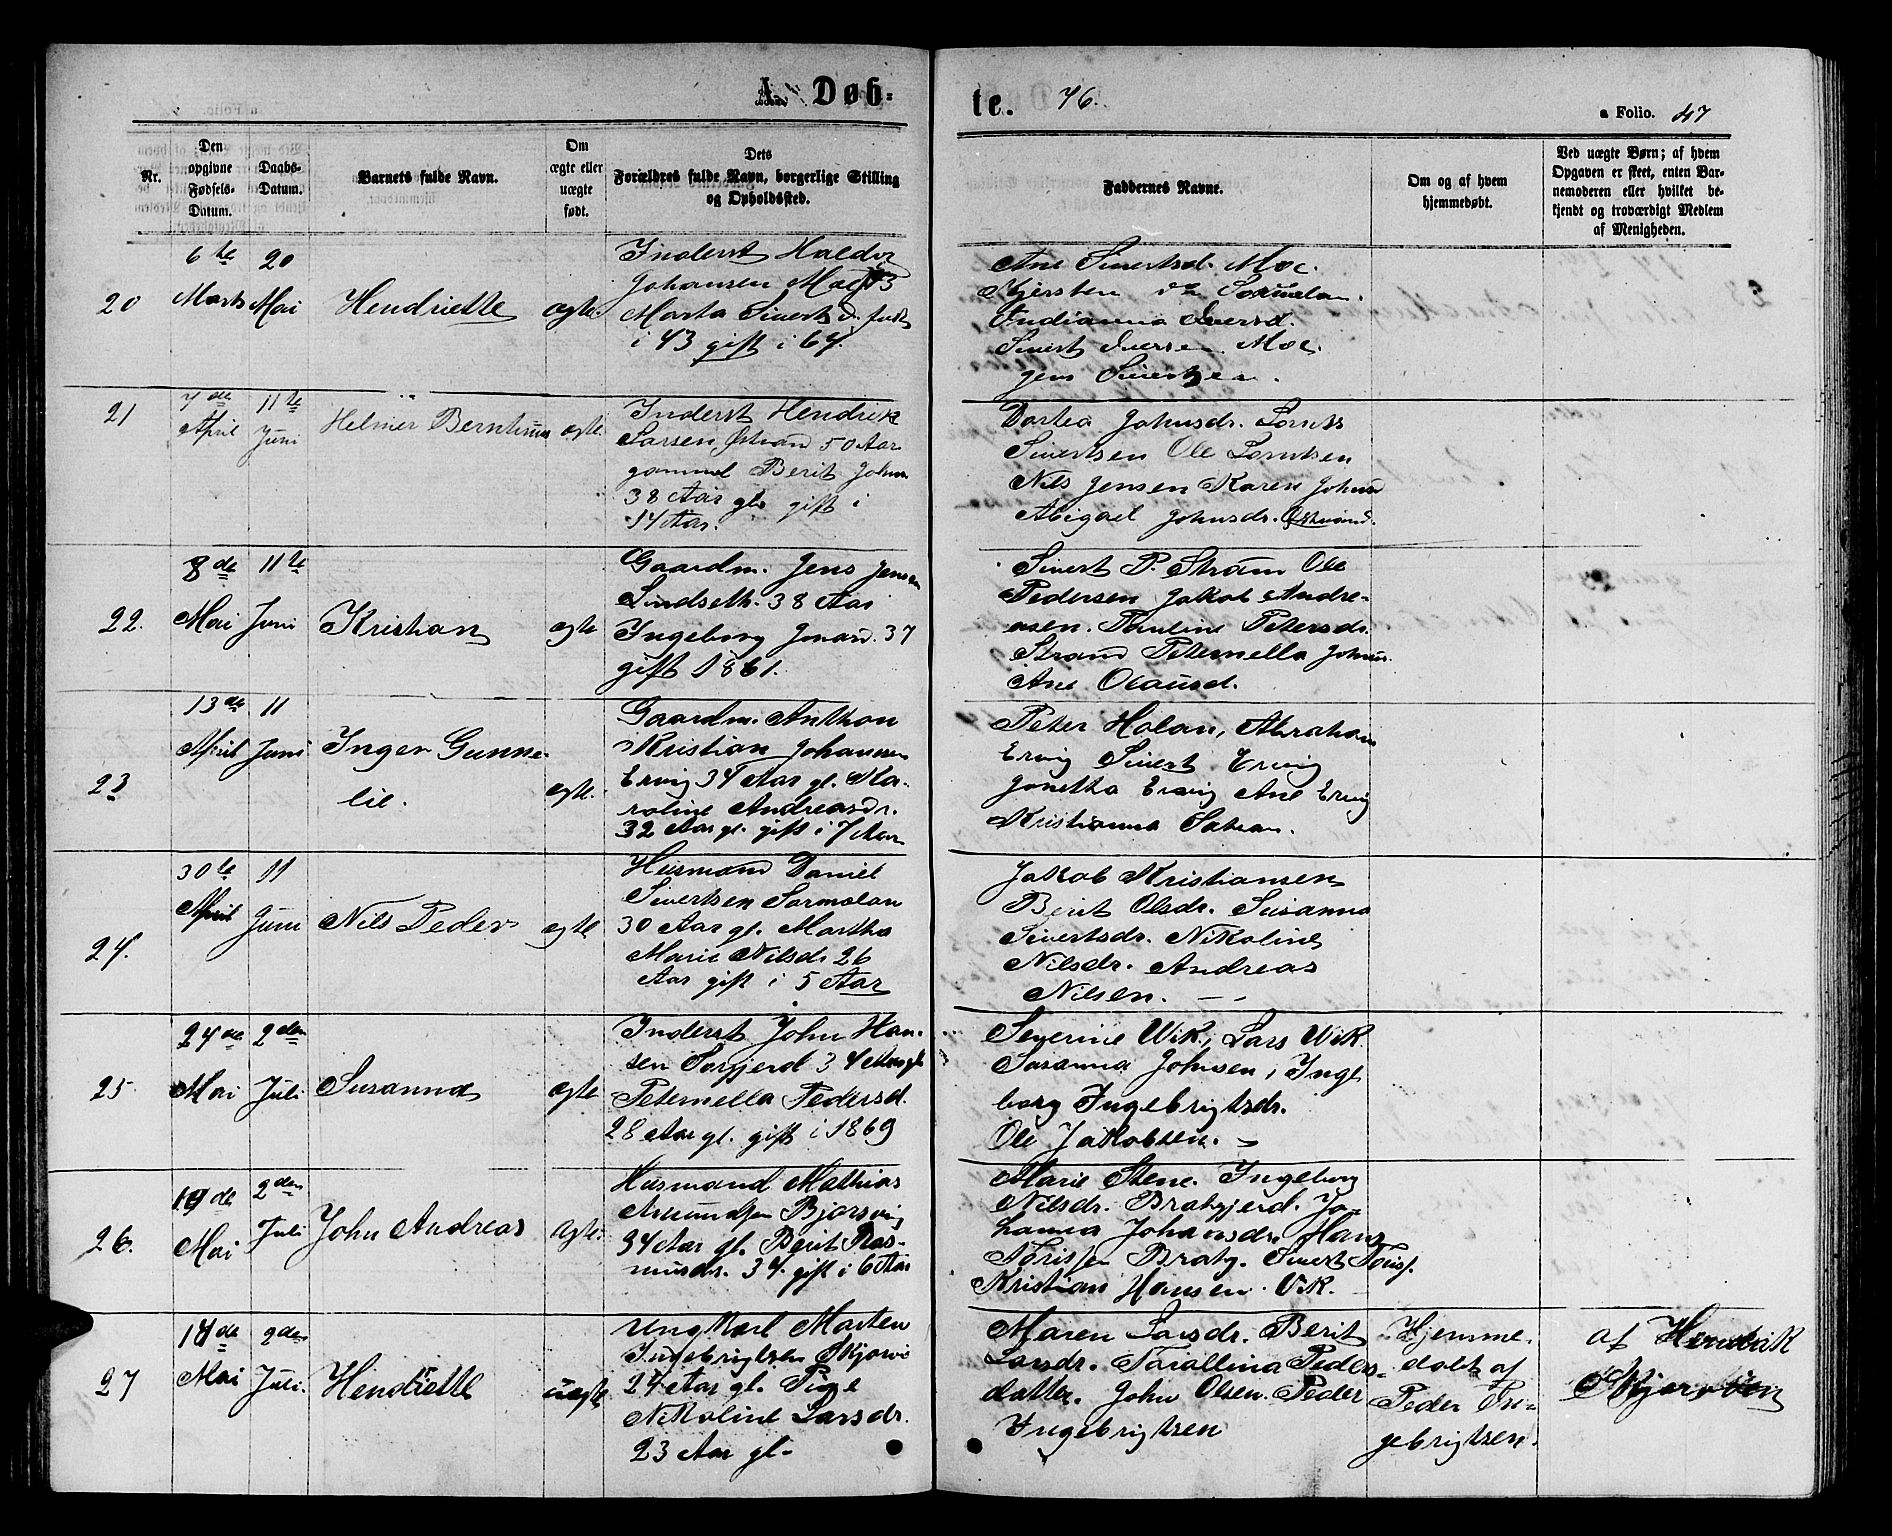 A. Døb-
te. 76.
a Folio. 47
Nr.
Den opgivne Fødsels-Datum.
Daabs-Datum.
Barnets fulde Navn.
Om ægte eller uægte født.
Dets Forældres fulde Navn, borgerlige Stilling og Opholdssted.
Faddernes Navne.
Om og af hvem hjemmedøbt.
Ved uægte Børn; af hvem Opgaven er skeet, enten Barnemoderen eller hvilket bekjendt og troværdigt Medlem af Menigheden.
20
6te Marts
20 Mai
Hendriette
ægte.
Inderst Haldor
Johansen Moe
Marta Sivertsd. født
i 43 gift i 64.
Ane Sivertsd. Moe.
Indianna Iversd.
Sivert Iversen Moe.
Jens Sivertsen.
21
7de April
11te Juni
Helmer
ægte
Inderst Hendrik
Larsen 50 Aar
gammel Berit Johns
38 Aar gl. gift i
14 Aar.
Dortea Johnsdr.
Sivertsen Ole Lorntsen
Nils Jensen Karen Johnsd
Abigael Johnsdr.
22.
8de Mai
11te Juni
Kristian
ægte
Gaardm. Jens Jensen
Lindseth. 38 Aar
Ingeborg Jonasd. 37
gift 1861.
Sivert P. Strøm Ole
Pedersen Jakob Andre-
asen. Pauline Petersdr.
Strand Peternella Johns
Ane Olausd.
23
13de April
11 Juni
Inger Gunne-
lie.
ægte.
Gaardm. Anthon
Kristian Johansen
Ervig 34 Aar gl. Ka-
roline Andreasdr.
32 Aar gl. gift i 7 Aar
Peter Holan, Abraham
Ervig Sivert Ervig
Jonetta Ervig Ane Ervig
Kristianna
24.
30te April
11 Juni
Nils Peder
ægte
Husmand Daniel
Sivertsen Sørmolan
30 Aar gl. Martha
Marie Nilsdr 26
Aar gift i 5 Aar
Jakob Kristiansen
Berit Olsdr. Susanna
Sivertsdr. Nikoline
Nilsdr. Andreas
Nilsen.
25
24de Mai
2den Juli
Susanna
ægte
Inderst John Han-
sen 34 Aar gl
Peternella Pedersd.
28 Aar gl. gift i 1869
Severine Wik, Lars Wik.
Susanna Johnsen, Inge
borg Ingebrigtsdr.
Ole Jakobsen.
26.
19de Mai
2den Juli
John Andreas
ægte.
Husmand Mathias
Amundsen
34 Aar gl. Berit Ras-
musdr. 34. gift i 6 Aar
Marie Stene. Ingeborg
Nilsdr. Jo-
hanna Johansdr. Hans
Kristian Hansen. Vik.
27
14de Mai
2den Juli.
Hendriette
uægte
Ungkarl Morten
Ingebrigtsen
24 Aar gl. Pige
Nikoline Larsdr.
23 Aar gl.
Maren Larsdr. Berit
Larsdr. Peders-
datter. John Olsen. Peder
Ingebrigtsen
Hjemme-
døbt af
Peder In-
gebrigtsen.
af Hendrik